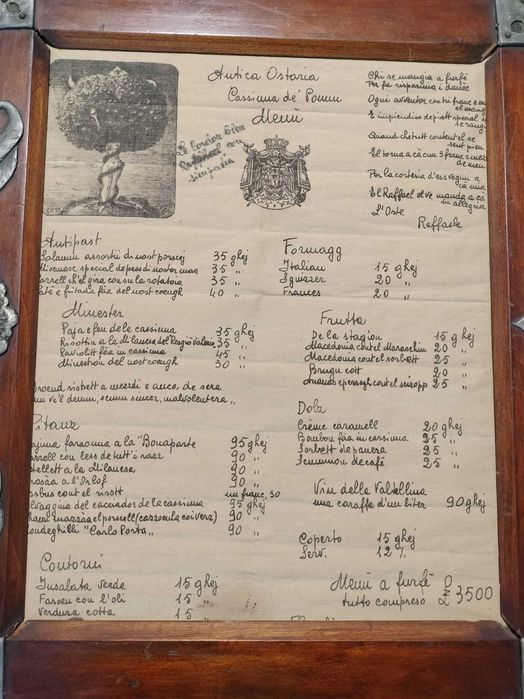 Antica Ostaria
Cassinna de' Pomm
Menú
Chi se mangia a furfé
Per fa risparmià i danee
Ogni avventor con tri franc e
el mang
E impiendiss de piatt special
se rang
Quand che tutt content el se
sent pien
El torna a cà cun 5 franc
de men
Per la cortesia d'ess vegnu a
cà mia
E el Raffael el ve manda a cà
in allegria
L'Oste
Raffaele
Antipast
Salamm assortii di nost porscej 35 ghej
special de pess di noster mar 35 "
Carrell ch'el gira con su la rotatoia 35 "
Paté e fritada fàa del nost coeugh 40 "
Minester
Papa e feu de le cassinna 35 ghej
Risottin a la Milanesa del Regio Valari 35 "
Raviolitt fàa in cassinna 45 "
Minestron del nost coeugh 30 "
risbett a mezdì e anca de sera
ve'l demm, semm sincer, malvolentera "
Pitanz
faraonna a la "Bonaparte" 95 ghej
carrell con less de tutt'i razz 90 "
a la Milanesa 90 "
a l'Orlof 90 "
cont el risott un franc, 30
del cacciador de la cassinna 95 ghej
mazzaa el porscell (cazzoeula coi vers) 90 "
"Carlo Porta" 90 "
Contorni
Insalata verde 15 ghej
Fasoeu con l'oli 15 "
Verdura cotta 15 "
Formagg
Italian 15 ghej
Sguizzer 20 "
Frances 20 "
Frutta
De la stagion 15 ghej
Macedonia cont el Maraschin 20 "
Macedonia cont el sorbett 25 "
Brugn cott 20 "
Ananas e persegh cont el sciropp 25 "
Dolz
Crème caramell 20 ghej
Bombon fàa in cassinna 25 "
Sorbett de panera 25 "
de café 25 "
Vin della Valtellina
una caraffa d'un liter 90 ghej
Coperto 15 ghej
Serv. 12 %
Menú a furfé
tutto compreso £ 3500